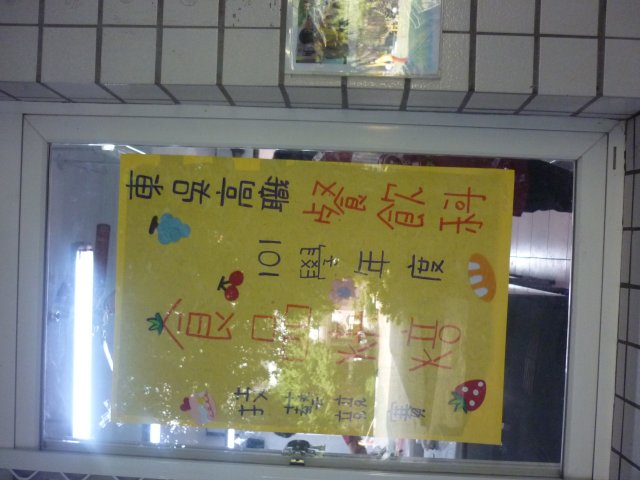 東吳高職餐飲科
101學年度
食品烘焙
技藝競賽